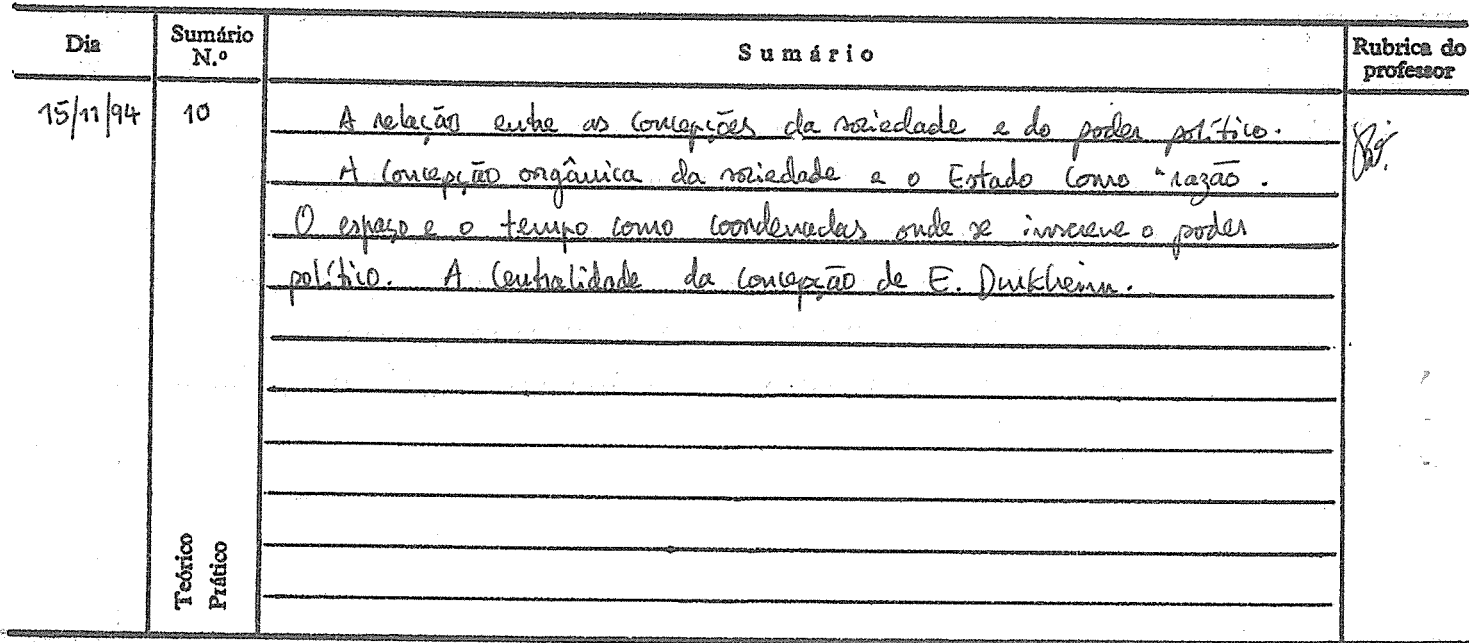 Dia
Sumário
N.º
Sumário
Rubrica do
professor
15/11/94
10
A relação entre as concepções da sociedade e do poder político.
A concepção orgânica da sociedade e o Estado como "razão.
O espaço e o tempo como coordenadas onde se inscreve o poder
político. A centralidade da concepção de E. Durkheim.
Teórico
Prático